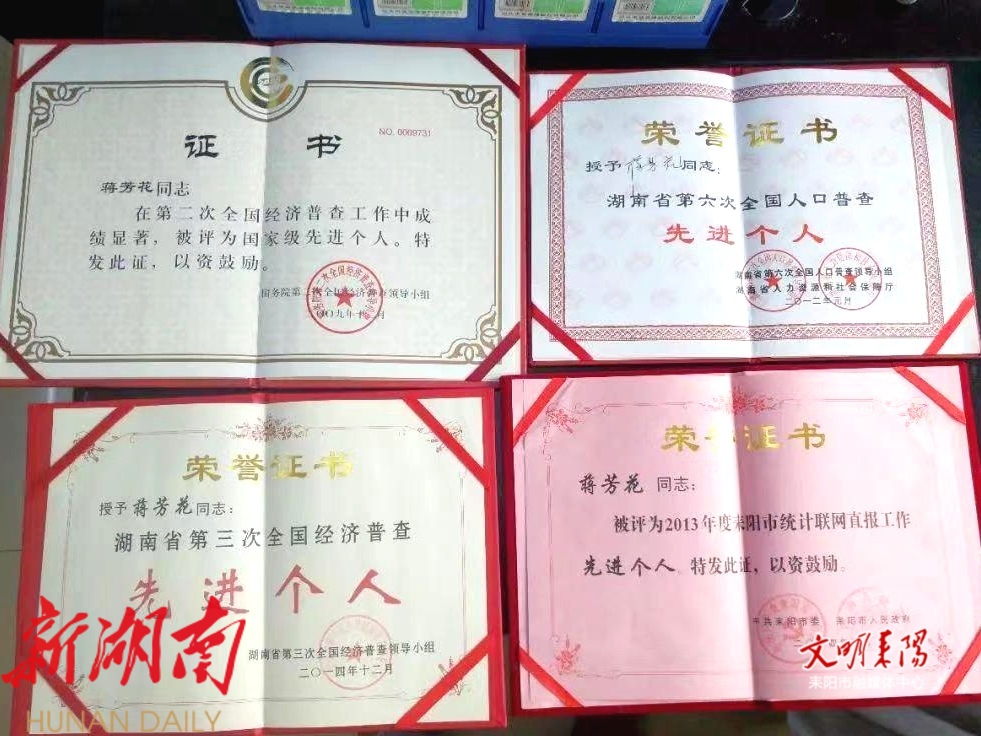 NO. 0009731
证书
蒋芳花同志
在第二次全国经济普查工作中成
绩显著，被评为国家级先进个人。特
发此证，以资鼓励。
国务院第二次全国经济普查领导小组
二〇〇九年十一月
荣誉证书
授予蒋芳花同志：
湖南省第六次全国人口普查
先进个人
湖南省第六次全国人口普查领导小组
湖南省人力资源和社会保障厅
二〇一二年元月
荣誉证书
授予蒋芳花同志：
湖南省第三次全国经济普查
先进个人
湖南省第三次全国经济普查领导小组
二〇一四年十二月
荣誉证书
蒋芳花 同志：
被评为2013年度耒阳市统计联网直报工作
先进个人 特发此证，以资鼓励。
中共耒阳市委 耒阳市人民政府
新湖南
HUNAN DAILY
文明耒阳
耒阳市融媒体中心